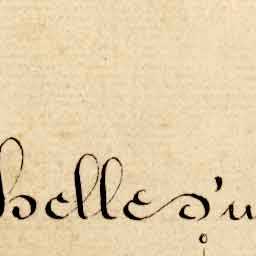 belle d'u